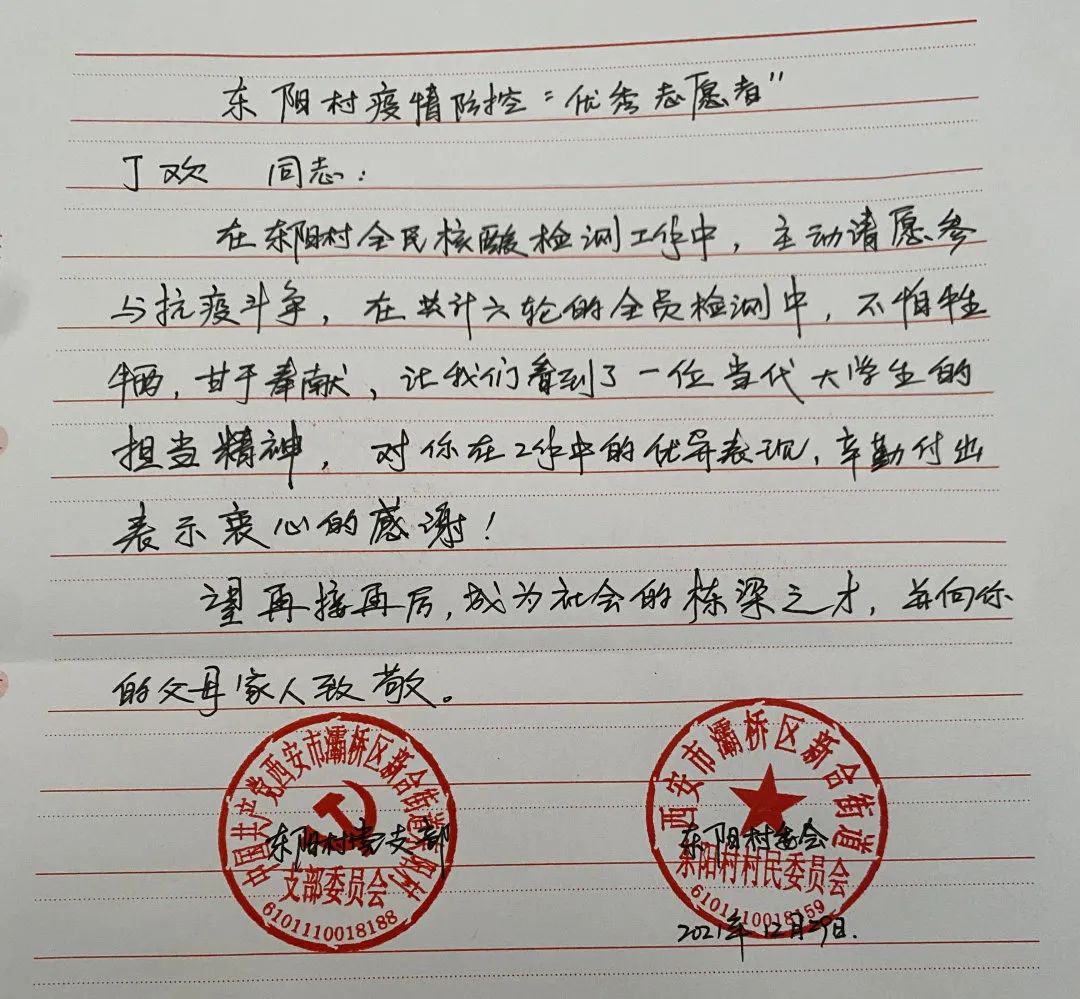 东阳村疫情防控“优秀志愿者”
丁欢 同志：
在东阳村全民核酸检测工作中，主动请愿参
与抗疫斗争，在共计六轮的全员检测中，不怕牺
牲，甘于奉献，让我们看到了一位当代大学生的
担当精神，对你在工作中的优异表现，辛勤付出
表示衷心的感谢！
望再接再厉，成为社会的栋梁之才，并向你
的父母家人致敬。
中国共产党西安市灞桥区新合街道东阳村
支部委员会
6101110018188
东阳村党支部
西安市灞桥区新合街道
东阳村村民委员会
6101110018159
东阳村委会
2021年12月29日.